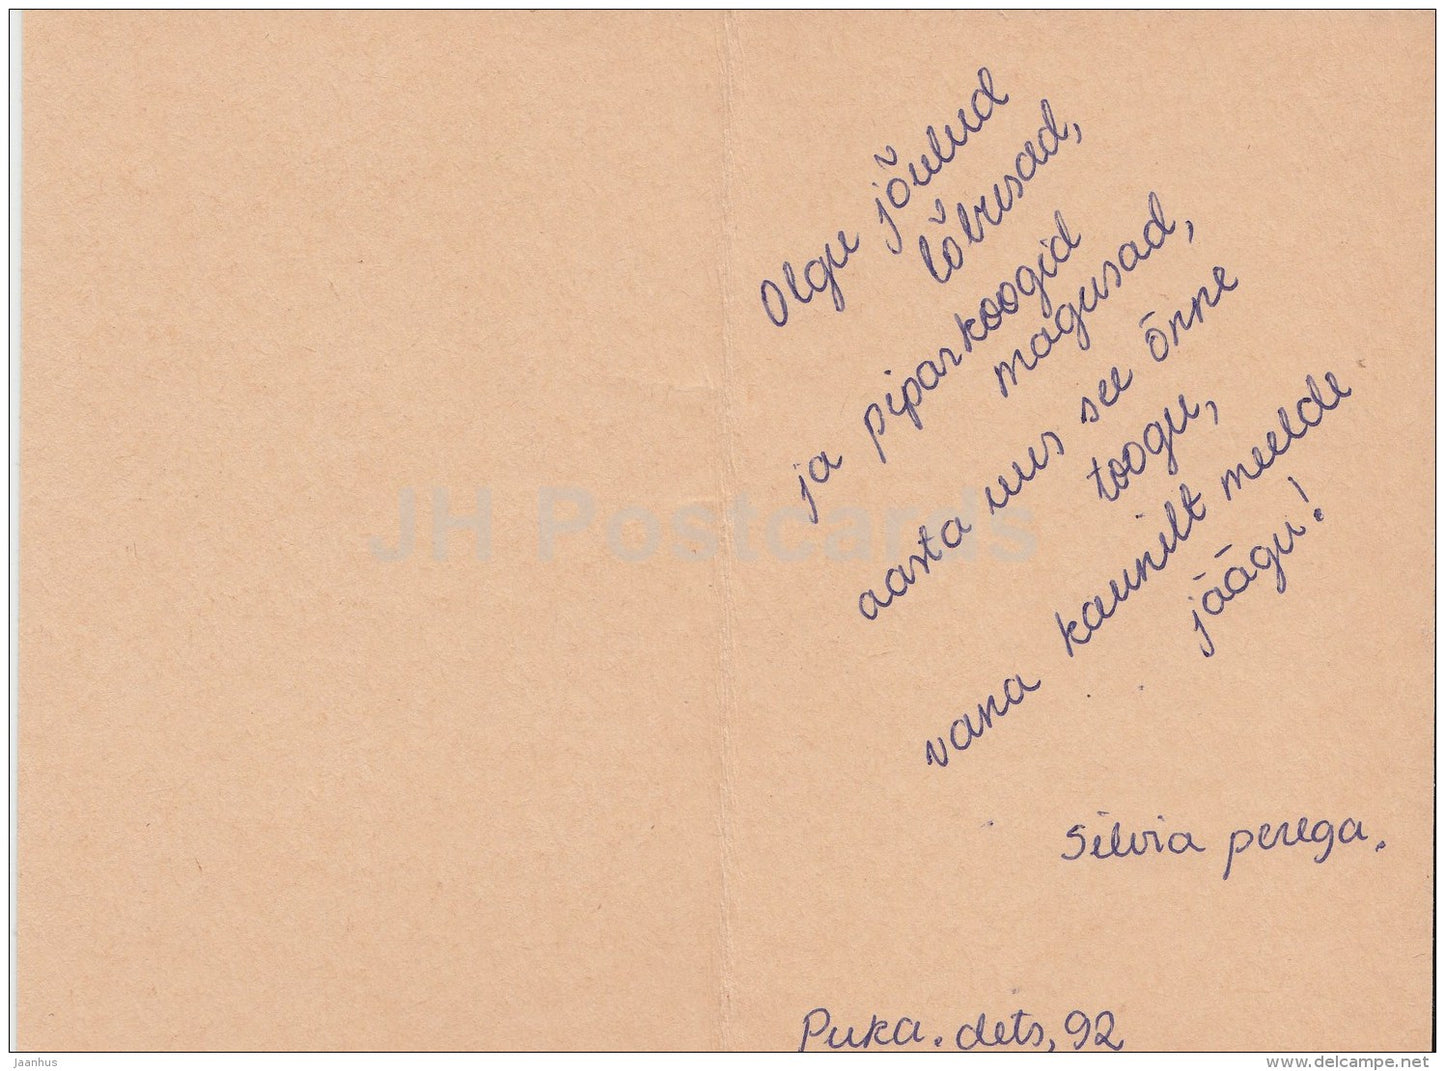 Olgu jõulud
lõbusad,
ja piparkoogid
magusad,
aasta uus see õnne
toogu,
vana kaunilt meelde
jäägu!
Silvia perega.
Puka. dets, 92
JH Postcards
jaanhus
www.delcampe.net